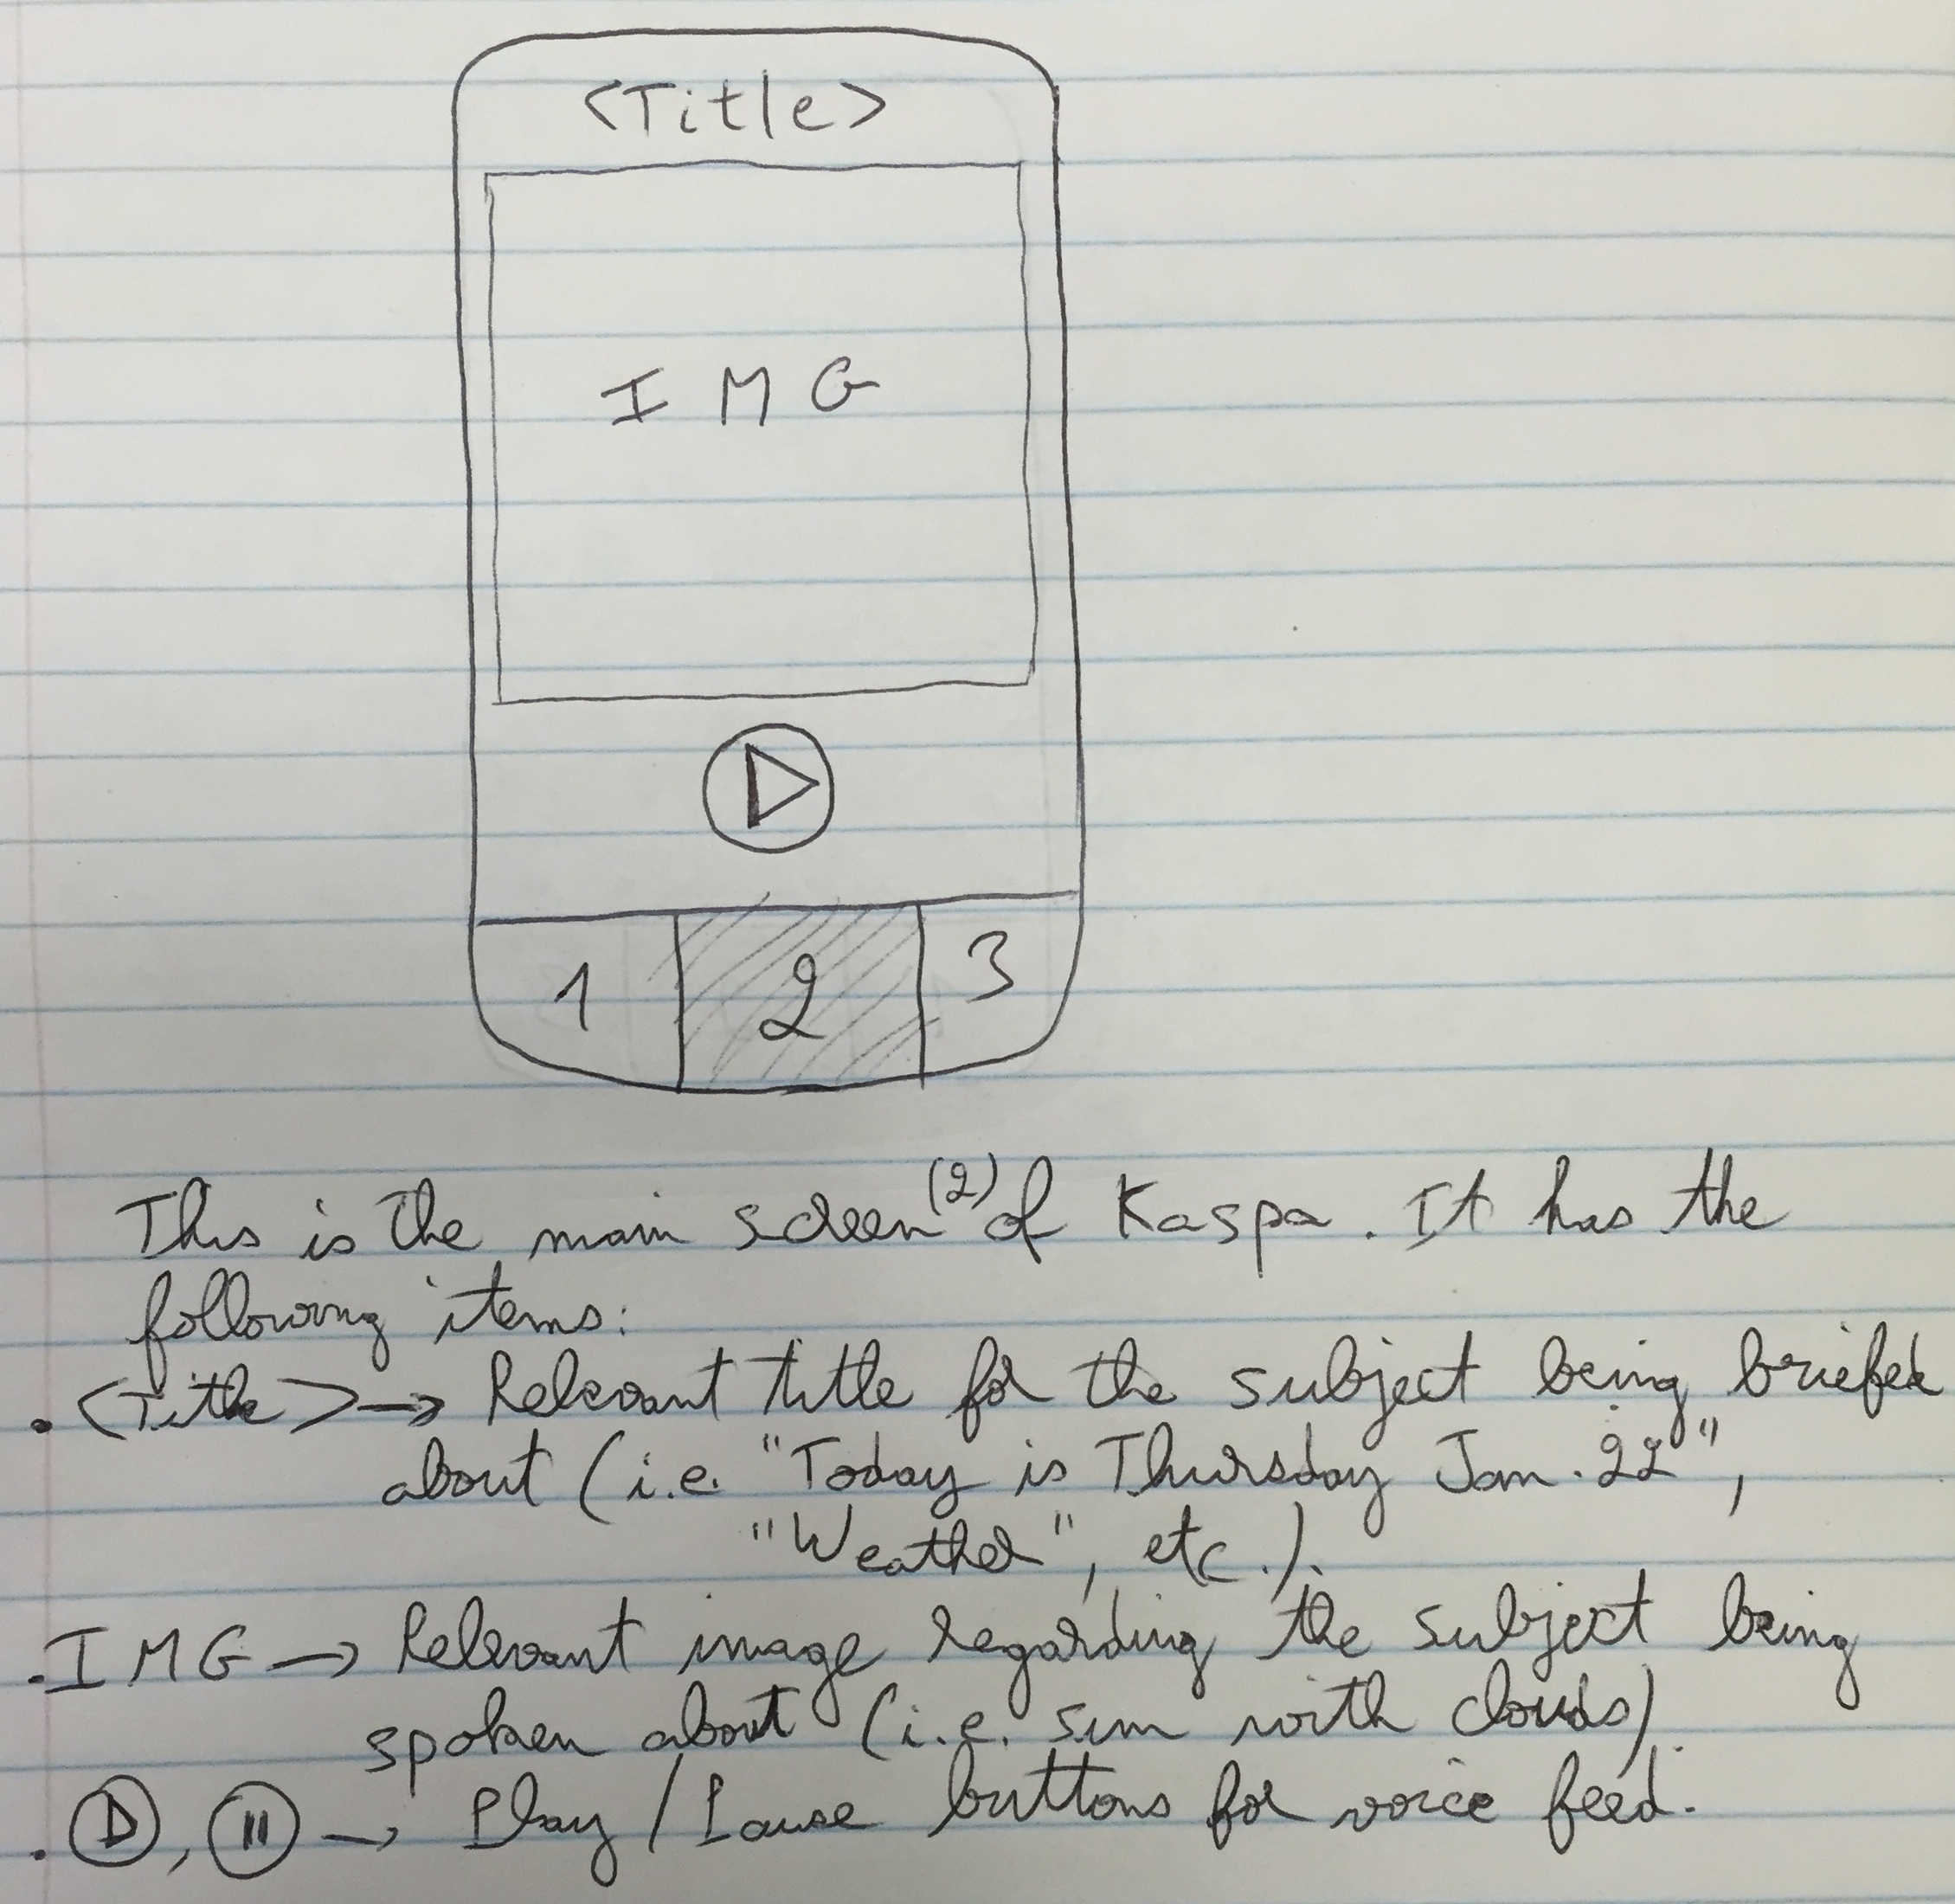 <Title>
I M G
1 2 3
This is the main screen (2) of Kaspa. It has the
following items:
. <Title> → Relevant title for the subject being briefed
about (i.e. "Today is Thursday Jan. 22",
"Weather", etc.).
. I M G → Relevant image regarding the subject being
spoken about (i.e. sun with clouds).
. , → Play / Pause buttons for voice feed.